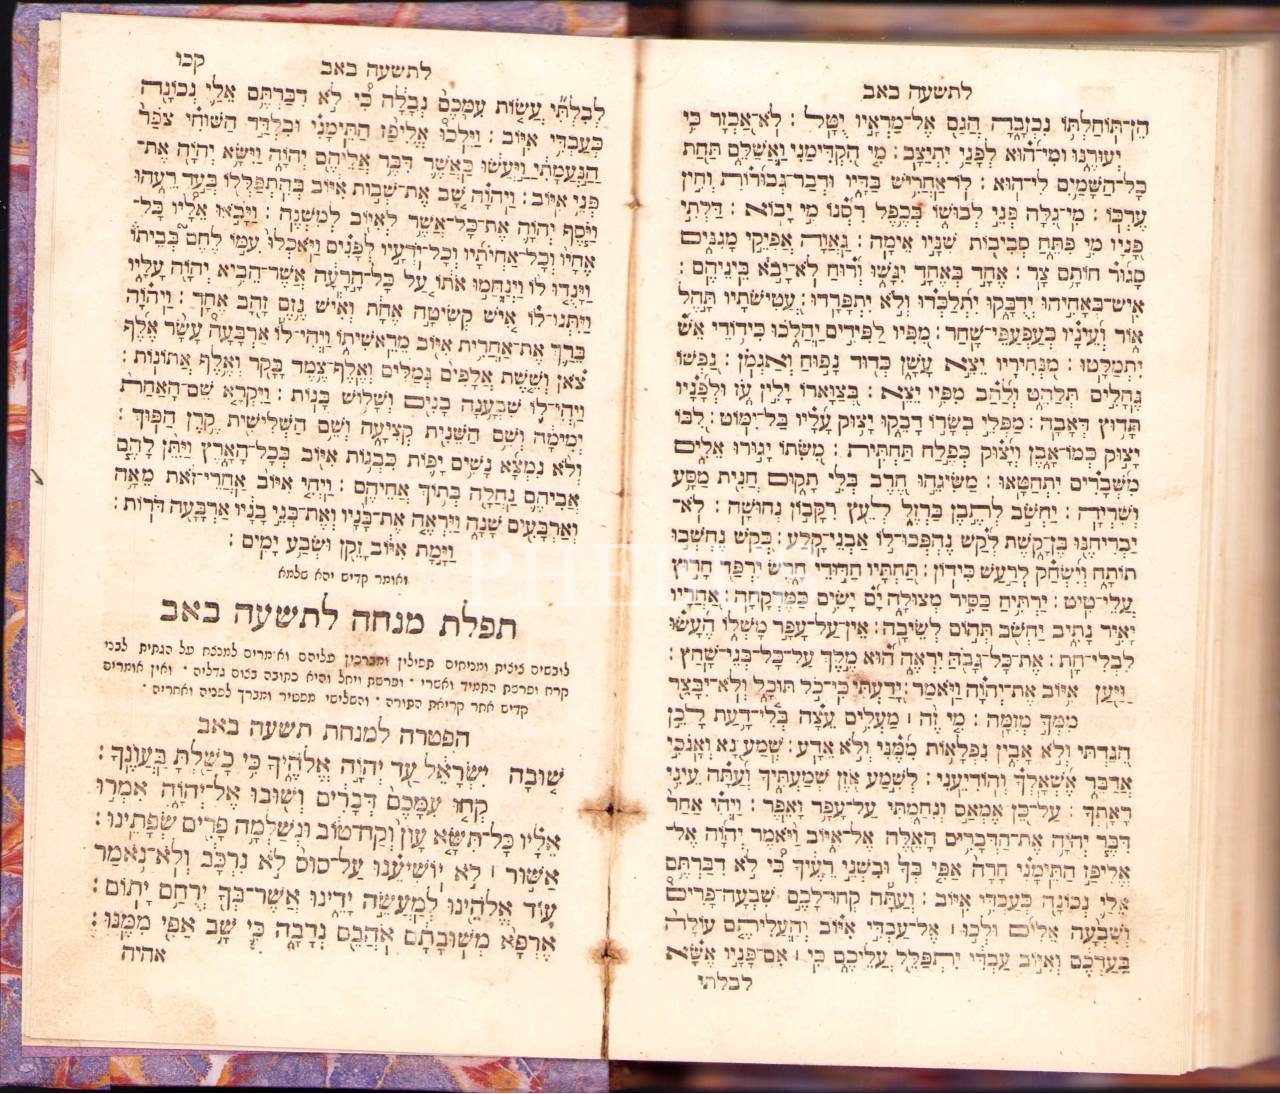 לתשעה באב
הֵן־תֹּחַלְתּוֹ נִכְזָבָה הֲגַם אֶל־מַרְאָיו יֻטָל : לֹא־אַכְזָר כִּי
יְעוּרֶנּוּ וּמִי־הוּא לְפָנַי יִתְיַצָּב : מִי הִקְדִּימַנִי וַאֲשַׁלֵּם תַּחַת
כָּל־הַשָּׁמַיִם לִי־הוּא : לוֹ־אַחֲרִישׁ בַּדָּיו וּדְבַר־גְּבוּרוֹת וְחִין
עֶרְכּוֹ : מִי־גִלָּה פְּנֵי לְבוּשׁוֹ בְּכֶפֶל רִסְנוֹ מִי יָבוֹא : דַּלְתֵי
פָנָיו מִי פִתֵּחַ סְבִיבוֹת שִׁנָּיו אֵימָה : גַּאֲוָה אֲפִיקֵי מָגִנִּים
סָגוּר חוֹתָם צָר : אֶחָד בְּאֶחָד יִגַּשׁוּ וְרוּחַ לֹא־יָבֹא בֵּינֵיהֶם :
אִישׁ־בְּאָחִיהוּ יְדֻבָּקוּ יִתְלַכְּדוּ וְלֹא יִתְפָּרָדוּ : עֲטִישֹׁתָיו תָּהֶל
אוֹר וְעֵינָיו כְּעַפְעַפֵּי־שָׁחַר : מִפִּיו לַפִּידִים יַהֲלֹכוּ כִּידוֹדֵי אֵשׁ
יִתְמַלָּטוּ : מִנְּחִירָיו יֵצֵא עָשָׁן כְּדוּד נָפוּחַ וְאַגְמֹן : נַפְשׁוֹ
גֶּחָלִים תְּלַהֵט וְלַהַב מִפִּיו יֵצֵא : בְּצַוָּארוֹ יָלִין עֹז וּלְפָנָיו
תָּדוּץ דְּאָבָה : מַפְּלֵי בְשָׂרוֹ דָבֵקוּ יָצוּק עָלָיו בַּל־יִמּוֹט : לִבּוֹ
יָצוּק כְּמוֹ־אָבֶן וְיָצוּק כְּפֶלַח תַּחְתִּית : מִשֵּׂתוֹ יָגוּרוּ אֵלִים
מִשְּׁבָרִים יִתְחַטָּאוּ : מַשִּׂיגֵהוּ חֶרֶב בְּלִי תָקוּם חֲנִית מַסָּע
וְשִׁרְיָה : יַחְשֹׁב לְתֶבֶן בַּרְזֶל לְעֵץ רִקָּבוֹן נְחוּשָׁה : לֹא־
יַבְרִיחֶנּוּ בֶן־קָשֶׁת לְקַשׁ נֶהְפְּכוּ־לוֹ אַבְנֵי־קָלַע : כְּקַשׁ נֶחְשְׁבוּ
תוֹתָח וְיִשְׂחַק לְרַעַשׁ כִּידוֹן : תַּחְתָּיו חַדּוּדֵי חָרֶשׂ יִרְפַּד חָרוּץ
עֲלֵי־טִיט : יַרְתִּיחַ כַּסִּיר מְצוּלָה יָם יָשִׂים כַּמֶּרְקָחָה : אַחֲרָיו
יָאִיר נָתִיב יַחְשֹׁב תְּהוֹם לְשֵׂיבָה : אֵין־עַל־עָפָר מָשְׁלוֹ הֶעָשׂוּ
לִבְלִי־חָת : אֶת־כָּל־גָּבֹהַּ יִרְאֶה הוּא מֶלֶךְ עַל־כָּל־בְּנֵי־שָׁחַץ :
וַיַּעַן אִיּוֹב אֶת־יְהוָֹה וַיֹּאמַר : יָדַעְתִּי כִּי־כֹל תּוּכָל וְלֹא־יִבָּצֵר
מִמְּךָ מְזִמָּה : מִי זֶה ׀ מַעְלִים עֵצָה בְּלִי־דָעַת לָכֵן
הִגַּדְתִּי וְלֹא אָבִין נִפְלָאוֹת מִמֶּנִּי וְלֹא אֵדָע : שְׁמַע־נָא וְאָנֹכִי
אֲדַבֵּר אֶשְׁאָלְךָ וְהוֹדִיעֵנִי : לְשֵׁמַע אֹזֶן שְׁמַעְתִּיךָ וְעַתָּה עֵינִי
רָאָתְךָ : עַל־כֵּן אֶמְאַס וְנִחַמְתִּי עַל־עָפָר וָאֵפֶר : וַיְהִי אַחַר
דִּבֶּר יְהוָֹה אֶת־הַדְּבָרִים הָאֵלֶּה אֶל־אִיּוֹב וַיֹּאמֶר יְהוָֹה אֶל־
אֱלִיפַז הַתֵּימָנִי חָרָה אַפִּי בְךָ וּבִשְׁנֵי רֵעֶיךָ כִּי לֹא דִבַּרְתֶּם
אֵלַי נְכוֹנָה כְּעַבְדִּי אִיּוֹב : וְעַתָּה קְחוּ־לָכֶם שִׁבְעָה־פָרִים
וְשִׁבְעָה אֵלִים וּלְכוּ ׀ אֶל־עַבְדִּי אִיּוֹב וְהַעֲלִיתֶם עוֹלָה
בַּעַדְכֶם וְאִיּוֹב עַבְדִּי יִתְפַּלֵּל עֲלֵיכֶם כִּי ׀ אִם־פָּנָיו אֶשָּׂא
לבלתי
לתשעה באב קכו
לְבִלְתִּי עֲשׂוֹת עִמָּכֶם נְבָלָה כִּי לֹא דִבַּרְתֶּם אֵלַי נְכוֹנָה
כְּעַבְדִּי אִיּוֹב : וַיֵּלְכוּ אֱלִיפַז הַתֵּימָנִי וּבִלְדַּד הַשּׁוּחִי צֹפַר
הַנַּעֲמָתִי וַיַּעֲשׂוּ כַּאֲשֶׁר דִּבֶּר אֲלֵיהֶם יְהוָֹה וַיִּשָּׂא יְהוָֹה אֶת־
פְּנֵי אִיּוֹב : וַיהוָֹה שָׁב אֶת־שְׁבוּת אִיּוֹב בְּהִתְפַּלְלוֹ בְּעַד רֵעֵהוּ
וַיֹּסֶף יְהוָֹה אֶת־כָּל־אֲשֶׁר לְאִיּוֹב לְמִשְׁנֶה : וַיָּבֹאוּ אֵלָיו כָּל־
אֶחָיו וְכָל־אַחְיֹתָיו וְכָל־יֹדְעָיו לְפָנִים וַיֹּאכְלוּ עִמּוֹ לֶחֶם בְּבֵיתוֹ
וַיָּנֻדוּ לוֹ וַיְנַחֲמוּ אֹתוֹ עַל כָּל־הָרָעָה אֲשֶׁר־הֵבִיא יְהוָֹה עָלָיו
וַיִּתְּנוּ־לוֹ אִישׁ קְשִׂיטָה אֶחָת וְאִישׁ נֶזֶם זָהָב אֶחָד : וַיהוָֹה
בֵּרַךְ אֶת־אַחֲרִית אִיּוֹב מֵרֵאשִׁיתוֹ וַיְהִי־לוֹ אַרְבָּעָה עָשָׂר אֶלֶף
צֹאן וְשֵׁשֶׁת אֲלָפִים גְּמַלִּים וְאֶלֶף־צֶמֶד בָּקָר וְאֶלֶף אֲתוֹנוֹת :
וַיְהִי־לוֹ שִׁבְעָנָה בָנִים וְשָׁלוֹשׁ בָּנוֹת : וַיִּקְרָא שֵׁם־הָאַחַת
יְמִימָה וְשֵׁם הַשֵּׁנִית קְצִיעָה וְשֵׁם הַשְּׁלִישִׁית קֶרֶן הַפּוּךְ :
וְלֹא נִמְצָא נָשִׁים יָפוֹת כִּבְנוֹת אִיּוֹב בְּכָל־הָאָרֶץ וַיִּתֵּן לָהֶם
אֲבִיהֶם נַחֲלָה בְּתוֹךְ אֲחֵיהֶם : וַיְחִי אִיּוֹב אַחֲרֵי־זֹאת מֵאָה
וְאַרְבָּעִים שָׁנָה וַיִּרְאֶה אֶת־בָּנָיו וְאֶת־בְּנֵי בָנָיו אַרְבָּעָה דֹּרוֹת :
וַיָּמָת אִיּוֹב זָקֵן וּשְׂבַע יָמִים :
ואומר קדיש יהא שלמא
תפלת מנחה לתשעה באב
לובשים ציצית ומניחים תפילין ומברכין עליהם ואומרים למנצח על הגתית לבני
קרח ופרשת התמיד ואשרי • ופרשת ויחל והיא כתובה בצום גדליה • ואין אומרים
קדיש אחר קריאת התורה • והשלישי מפטיר ומברך לפניה ואחריה •
הפטרה למנחת תשעה באב
שׁוּבָה יִשְׂרָאֵל עַד יְהוָֹה אֱלֹהֶיךָ כִּי כָשַׁלְתָּ בַּעֲוֹנֶךָ :
קְחוּ עִמָּכֶם דְּבָרִים וְשׁוּבוּ אֶל־יְהוָֹה אִמְרוּ
אֵלָיו כָּל־תִּשָּׂא עָוֹן וְקַח־טוֹב וּנְשַׁלְּמָה פָרִים שְׂפָתֵינוּ :
אַשּׁוּר ׀ לֹא יוֹשִׁיעֵנוּ עַל־סוּס לֹא נִרְכָּב וְלֹא־נֹאמַר
עוֹד אֱלֹהֵינוּ לְמַעֲשֵׂה יָדֵינוּ אֲשֶׁר־בְּךָ יְרֻחַם יָתוֹם :
אֶרְפָּא מְשׁוּבָתָם אֹהֲבֵם נְדָבָה כִּי שָׁב אַפִּי מִמֶּנּוּ :
אהיה